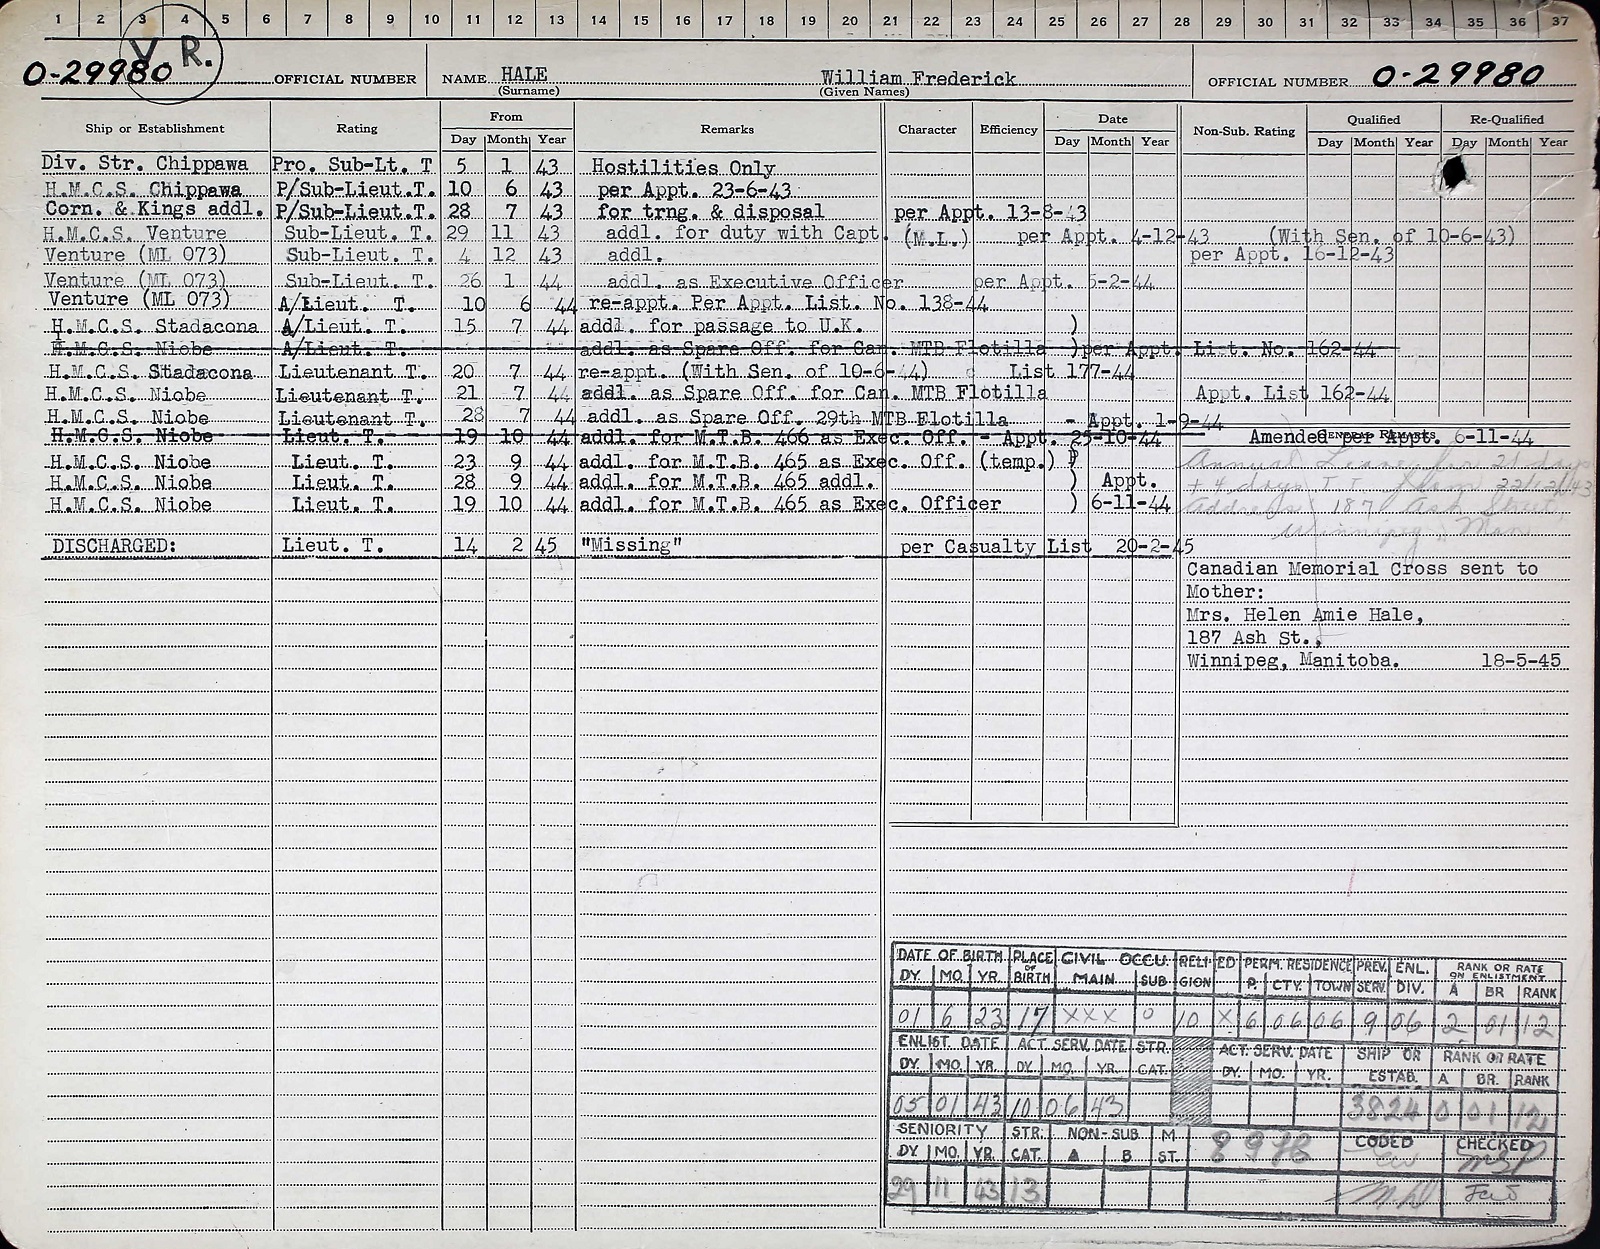 1 2 3 4 5 6 7 8 9 10 11 12 13 14 15 16 17 18 19 20 21 22 23 24 25 26 27 28 29 30 31 32 33 34 35 36 37
V R.
O-29980 OFFICIAL NUMBER NAME HALE William Frederick OFFICIAL NUMBER O-29980
(Surname) (Given Names)
Ship or Establishment Rating From Remarks Character Efficiency Date Non-Sub. Rating Qualified Re-Qualified
Day Month Year Day Month Year Day Month Year Day Month Year
Div. Str. Chippawa Pro. Sub-Lt. T 5 1 43 Hostilities Only
H.M.C.S. Chippawa P/Sub-Lieut.T. 10 6 43 per Appt. 23-6-43
Corn. & Kings addl. P/Sub-Lieut.T. 28 7 43 for trng. & disposal per Appt. 13-8-43
H.M.C.S. Venture Sub-Lieut. T. 29 11 43 addl. for duty with Capt. (M.L.) per Appt. 4-12-43 (With Sen. of 10-6-43)
Venture (ML 073) Sub-Lieut. T. 4 12 43 addl. per Appt. 16-12-43
Venture (ML 073) Sub-Lieut. T. 26 1 44 addl. as Executive Officer per Appt. 5-2-44
Venture (ML 073) A/Lieut. T. 10 6 44 re-appt. Per Appt. List. No. 138-44
H.M.C.S. Stadacona A/Lieut. T. 15 7 44 addl. for passage to U.K. )
H.M.C.S. Niobe A/Lieut. T. addl. as Spare Off. for Can. MTB Flotilla )per Appt. List. No. 162-44
H.M.C.S. Stadacona Lieutenant T. 20 7 44 re-appt. (With Sen. of 10-6-44) List 177-44
H.M.C.S. Niobe Lieutenant T. 21 7 44 addl. as Spare Off. for Can. MTB Flotilla Appt. List 162-44
H.M.C.S. Niobe Lieutenant T. 28 7 44 addl. as Spare Off. 29th MTB Flotilla - Appt. 1-9-44
H.M.C.S. Niobe Lieut. T. 19 10 44 addl. for M.T.B. 466 as Exec. Off. - Appt. 25-10-44 GENERAL REMARKS Amended per Appt. 6-11-44
H.M.C.S. Niobe Lieut. T. 23 9 44 addl. for M.T.B. 465 as Exec. Off. (temp.) ) Annual Leave for 21 days
H.M.C.S. Niobe Lieut. T. 28 9 44 addl. for M.T.B. 465 addl. ) Appt. + 4 days T.T. from 22/12/43
H.M.C.S. Niobe Lieut. T. 19 10 44 addl. for M.T.B. 465 as Exec. Officer ) 6-11-44 Address 187 Ash Street
Winnipeg, Man
DISCHARGED: Lieut. T. 14 2 45 "Missing" per Casualty List 20-2-45
Canadian Memorial Cross sent to
Mother:
Mrs. Helen Amie Hale,
187 Ash St.,
Winnipeg, Manitoba. 18-5-45
DATE OF BIRTH PLACE OF BIRTH CIVIL OCCU. RELI-GION ED PERM. RESIDENCE PREV. SERV. ENL. DIV. RANK OR RATE ON ENLISTMENT
DY. MO. YR. MAIN SUB P. CTY. TOWN A BR RANK
01 6 23 17 XXX 0 10 X 6 06 06 9 06 2 01 12
ENLIST. DATE ACT. SERV. DATE STR. CAT. ACT. SERV. DATE SHIP OR ESTAB. RANK OR RATE
DY. MO. YR. DY. MO. YR. DY. MO. YR. A BR. RANK
05 01 43 10 06 43 3824 0 01 12
SENIORITY STR. CAT. NON-SUB M ST. CODED CHECKED
DY. MO. YR. A B
29 11 43 13